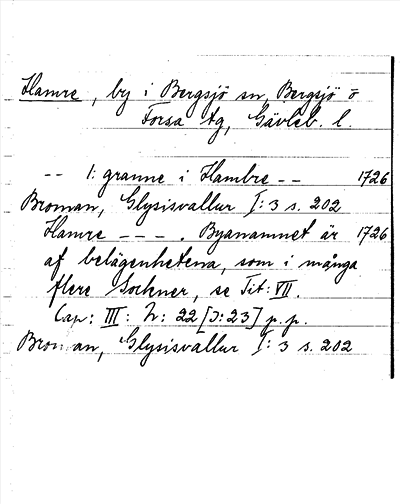 Hamre, by i Bergsjö sn, Bergsjö o
Forsa tg, Gävleb. l.
-- 1: granne i Hambre -- 1726
Broman, Glysisvallur I: 3 s. 202
Hamre --- . Byanamnet är 1726
af belägenhetena, som i många
flere Sockner, se Tit: VII.
Cap: III: N: 22 [o: 23] p. p.
Broman, Glysisvallur I: 3 s. 202